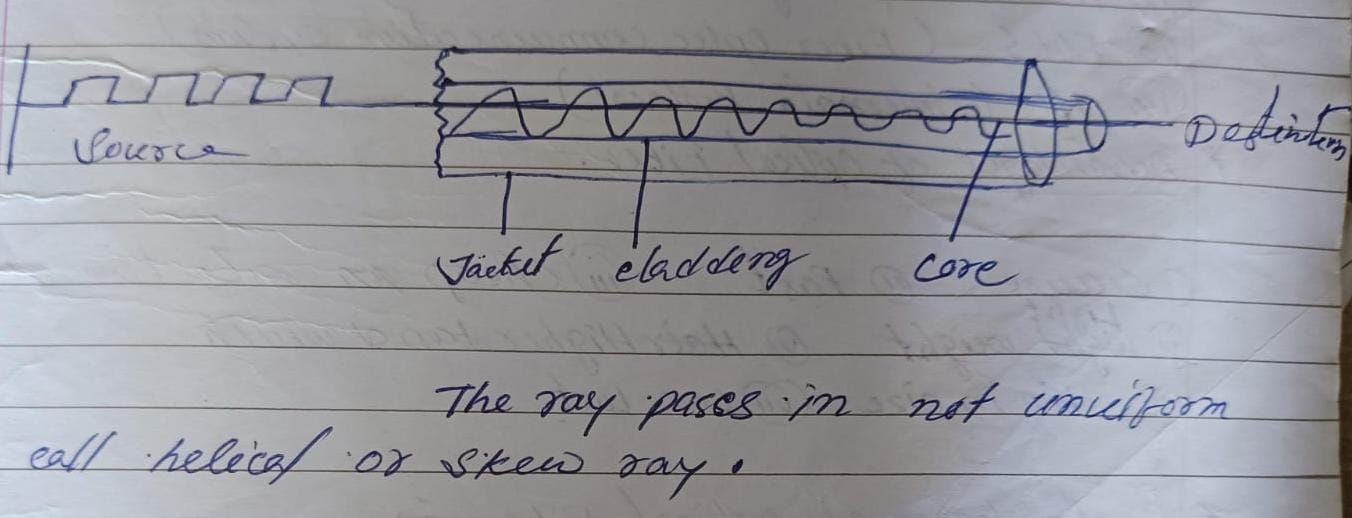 Source
Destintern
Jacket claddeng core
The ray pases in not unuiform
call helical or skew ray.